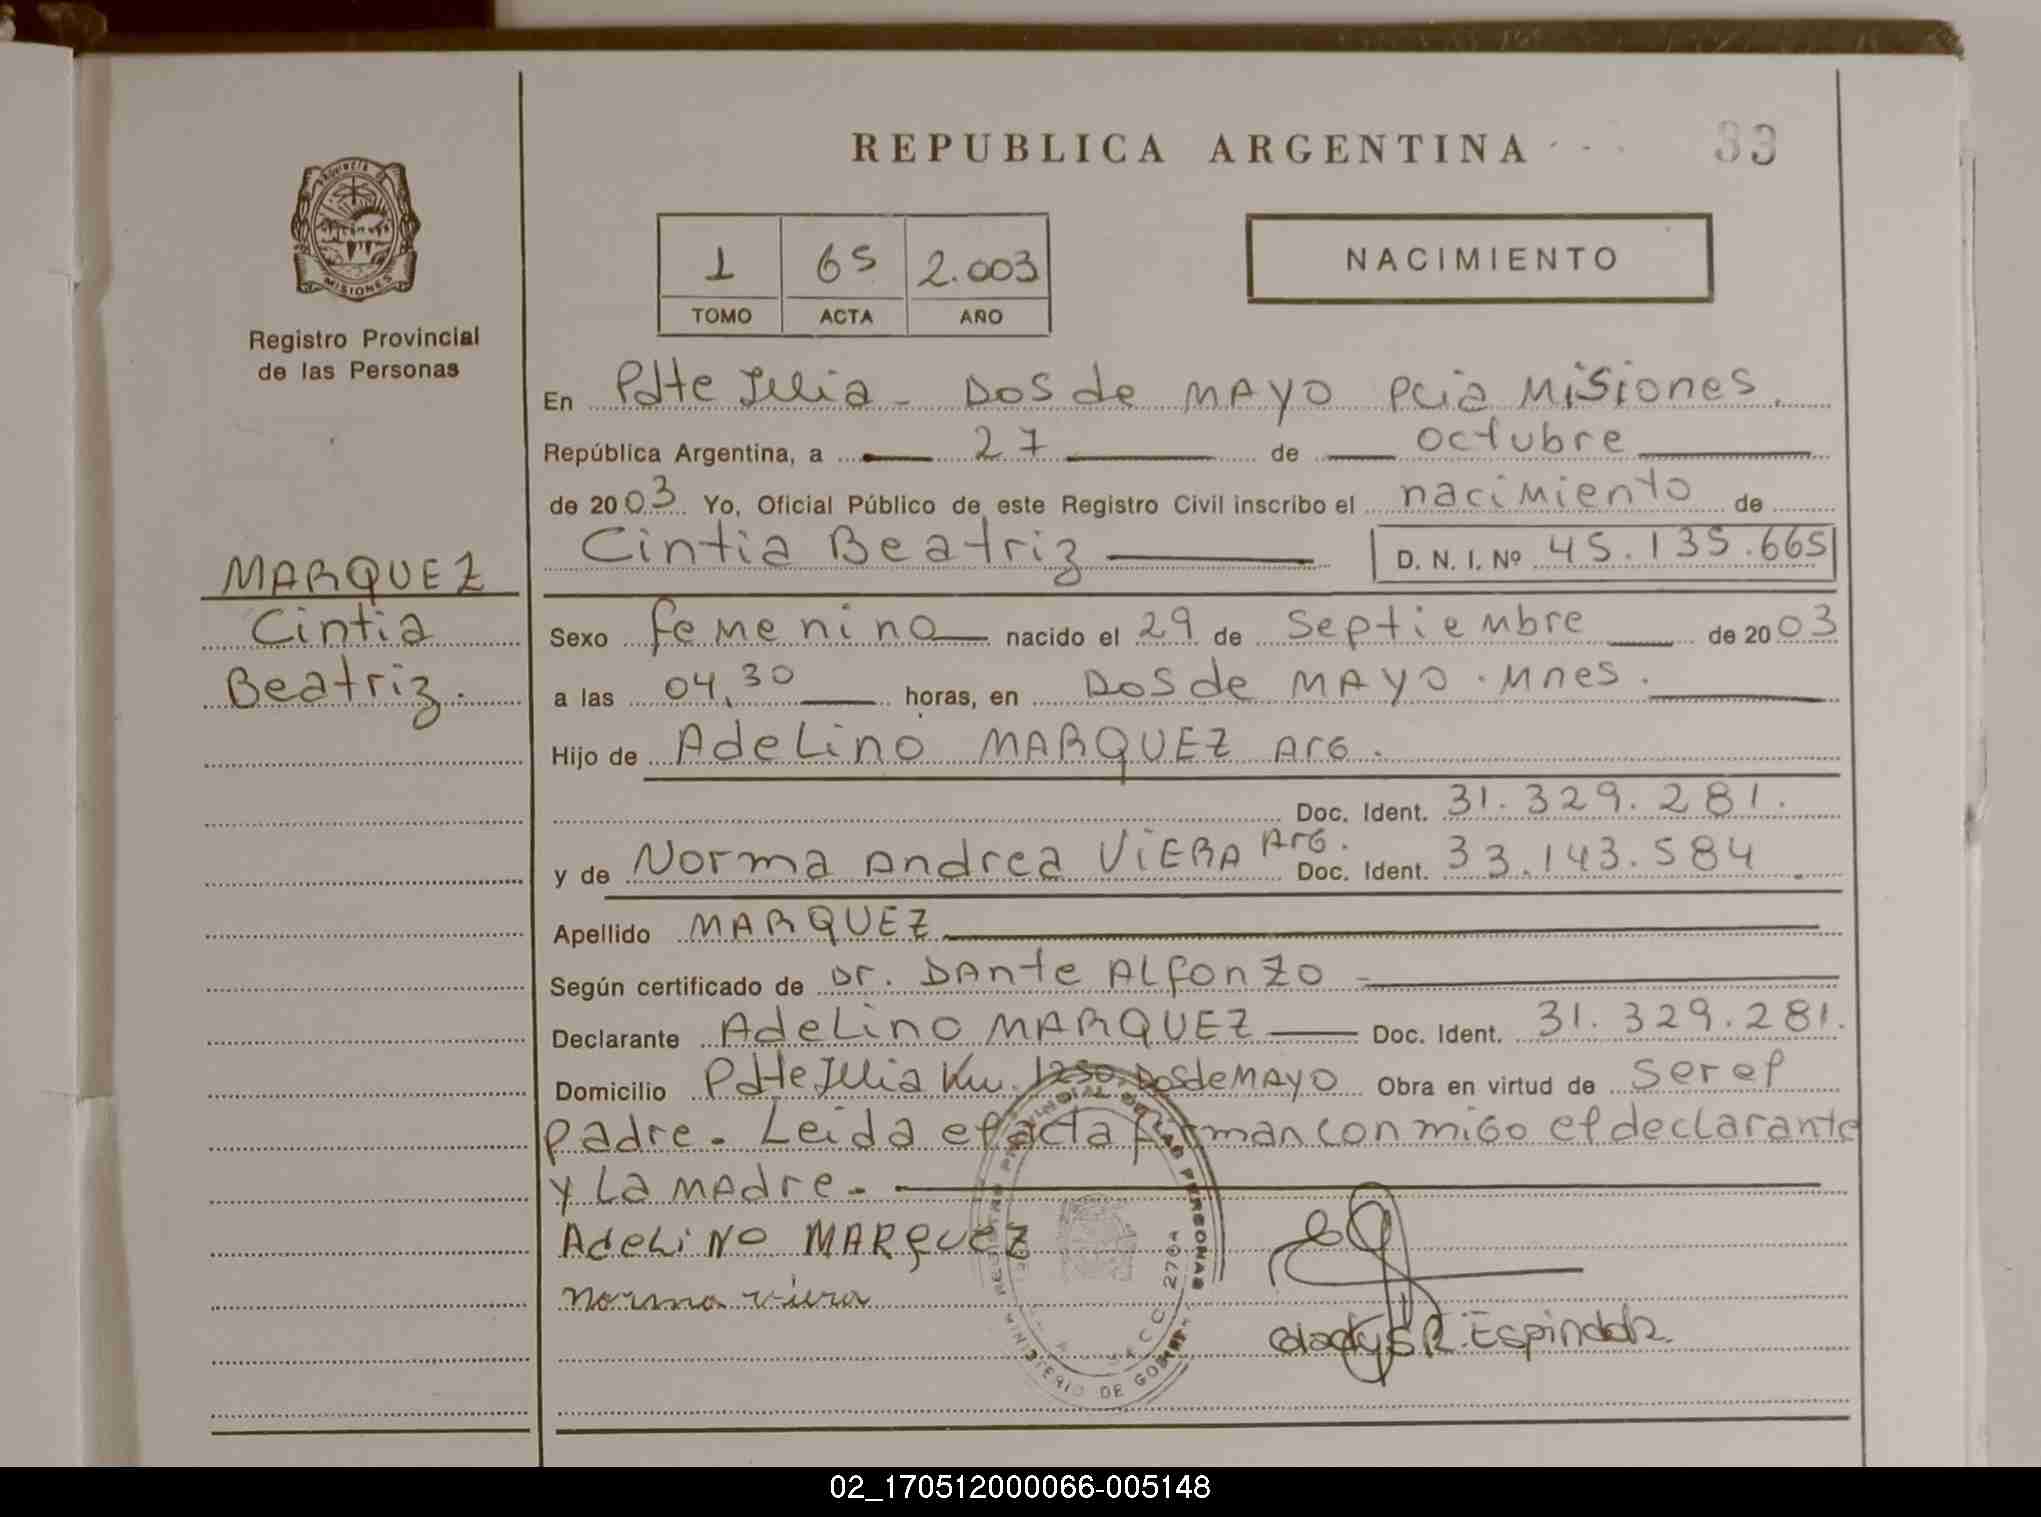 REPUBLICA ARGENTINA
33
PROVINCIA DE
MISIONES
Registro Provincial
de las Personas
1 65 2.003
TOMO ACTA AÑO
NACIMIENTO
En Pdte Illia - Dos de MAYO Pcia Misiones.
República Argentina, a 27 de octubre
de 2003. Yo, Oficial Público de este Registro Civil inscribo el nacimiento de
Cintia Beatriz D. N. I. Nº 45.135.665
MARQUEZ
Cintia
Beatriz.
Sexo femenino nacido el 29 de Septiembre de 2003
a las 04,30 horas, en Dos de MAYO. Mnes.
Hijo de Adelino MARQUEZ Arg.
Doc. Ident. 31.329.281.
y de Norma Andrea VIERA Arg. Doc. Ident. 33.143.584
Apellido MARQUEZ
Según certificado de Dr. Dante Alfonzo
Declarante Adelino MARQUEZ Doc. Ident. 31.329.281.
Domicilio Pdte Illia Km. 1250. Dos de MAYO Obra en virtud de ser el
padre. Leida el acta firman conmigo el declarante
y la madre.
AdeLiNO MARQUEZ
norma viera
Gladys R. Espindola
MINISTERIO DE GOBIERNO
REGISTRO PROVINCIAL DE LAS PERSONAS
2704
02_170512000066-005148